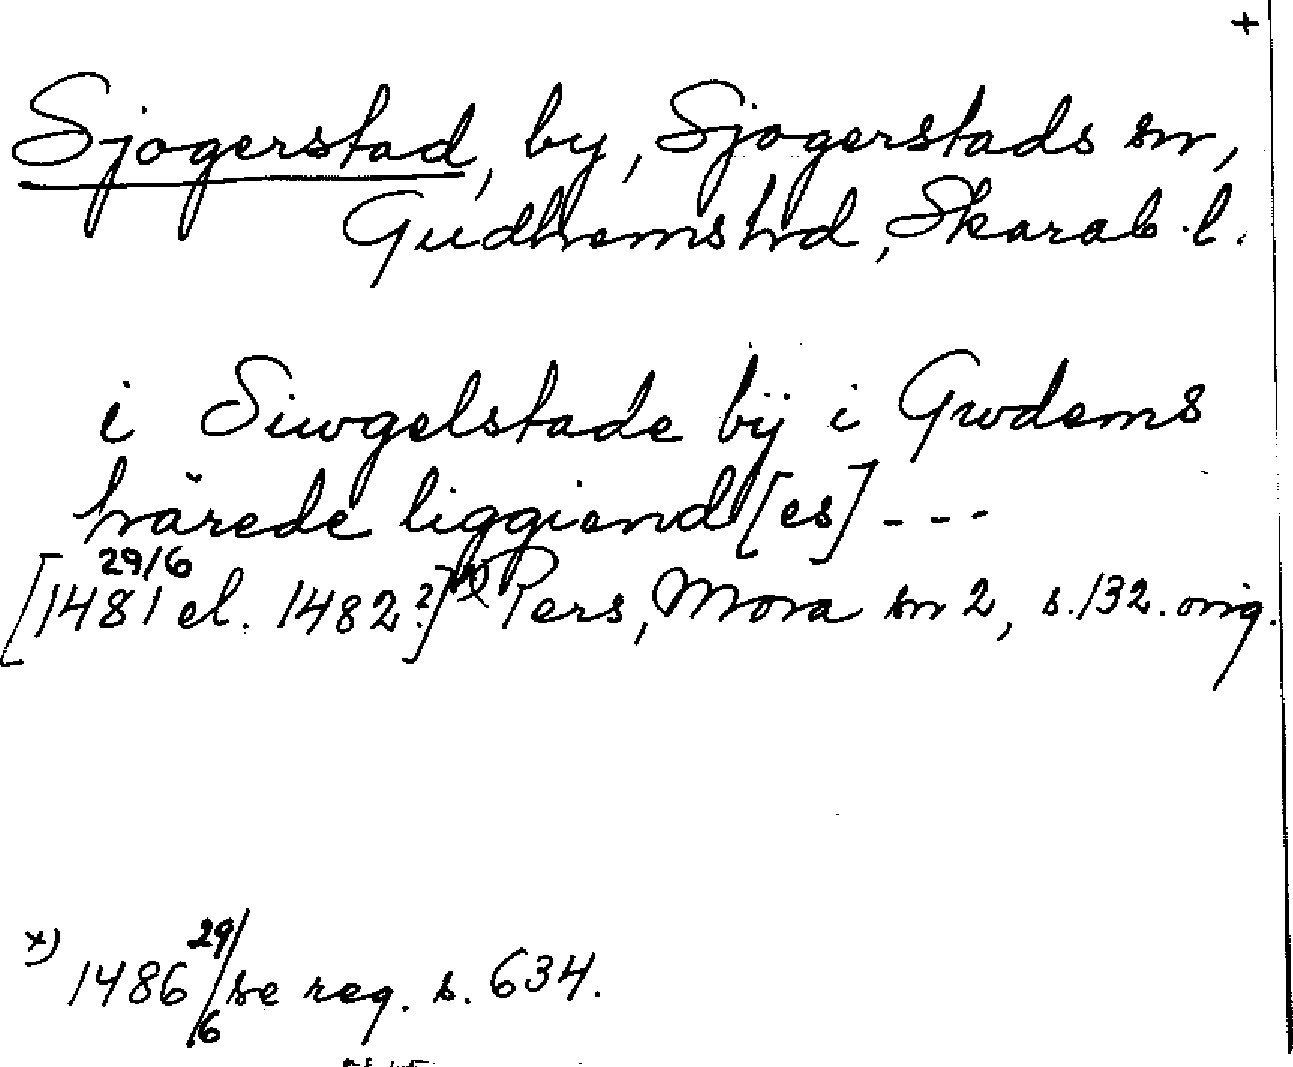 +
Sjogerstad, by, Sjogerstads sn,
Gudhemshrd, Skarab. l.
i Siwgelstade bÿ i Gwdems
härede liggiend[es] ---
[1481 29/6 el. 1482?] x) Pers, Mora sn 2, s. 132. orig.
x) 1486 29/6 se reg. s. 634.